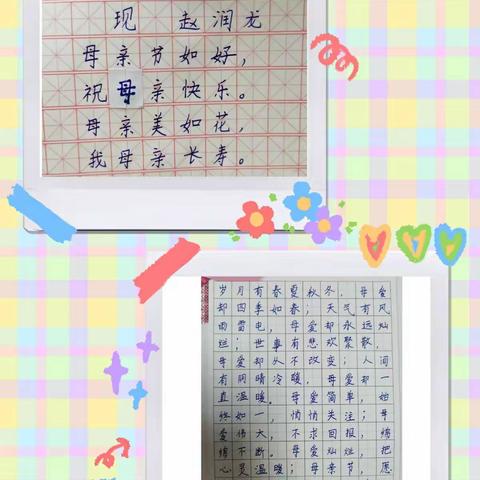 现 赵润龙
母亲节如好，
祝母亲快乐。
母亲美如花，
我母亲长寿。
岁月有春夏秋冬，母爱
却四季如春；天气有风
雨雷电，母爱却永远灿
烂；世事有悲欢聚散，
母爱却从不改变；人间
有阴晴冷暖，母爱却一
直温暖。母爱简单，始
终如一，悄悄关注；母
爱伟大，不求回报，绵
绵不断。母爱灿烂，把
心灵温暖；母亲节，愿